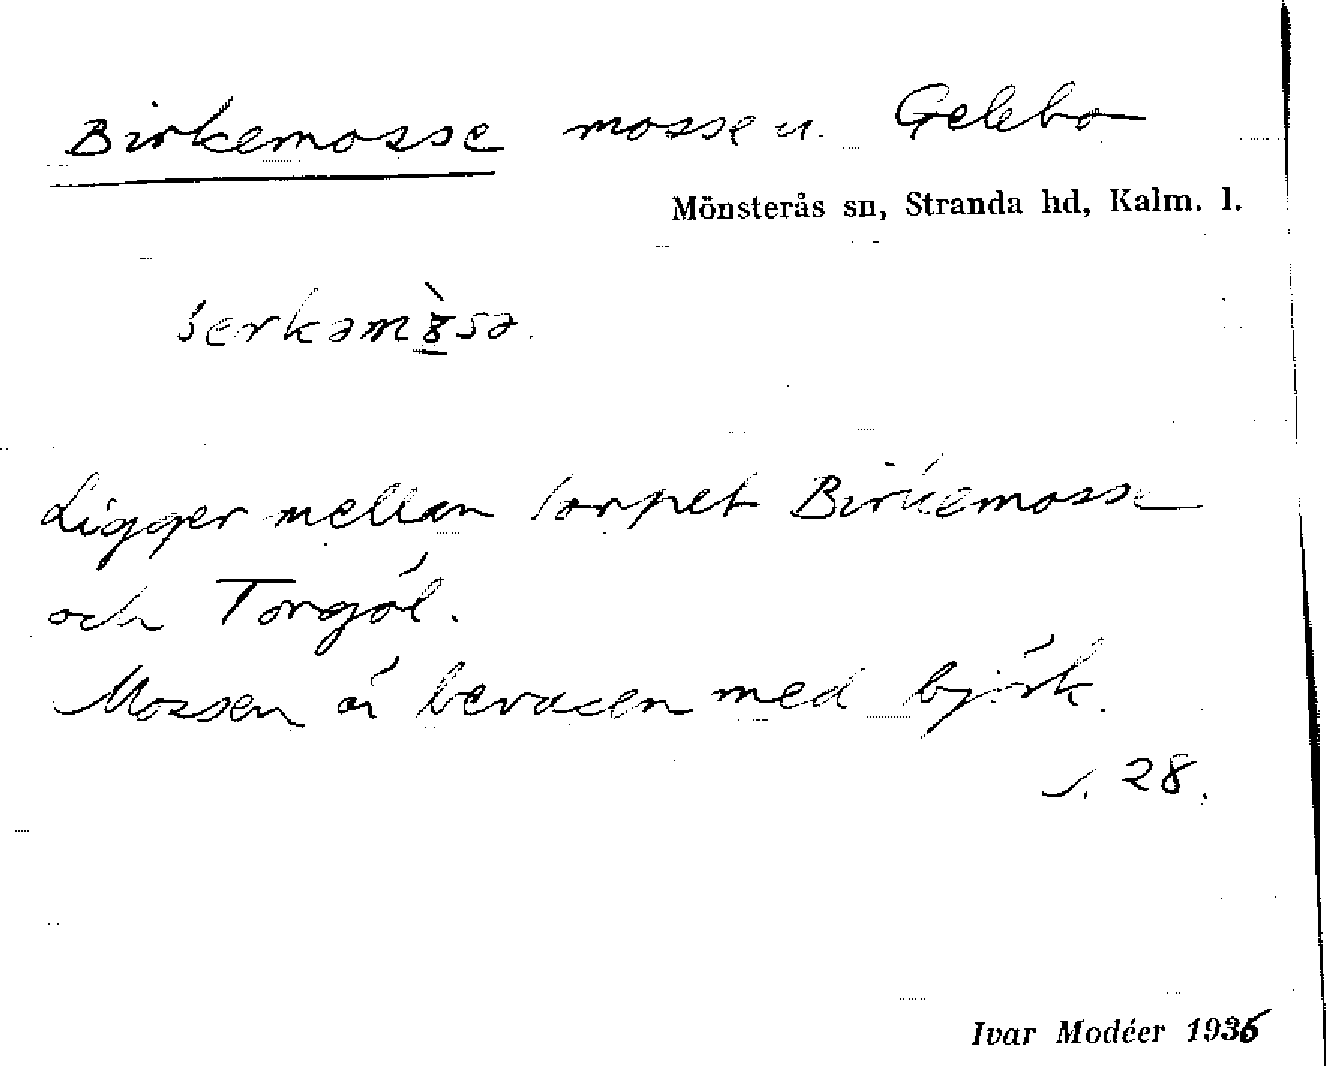 Birkemosse mosse u. Gelebo
Mönsterås sn, Stranda hd, Kalm. l.
Ligger mellan torpet Birkemosse
och Torgöl.
Mossen är bevuxen med björk.
s. 28.
Ivar Modéer 1936